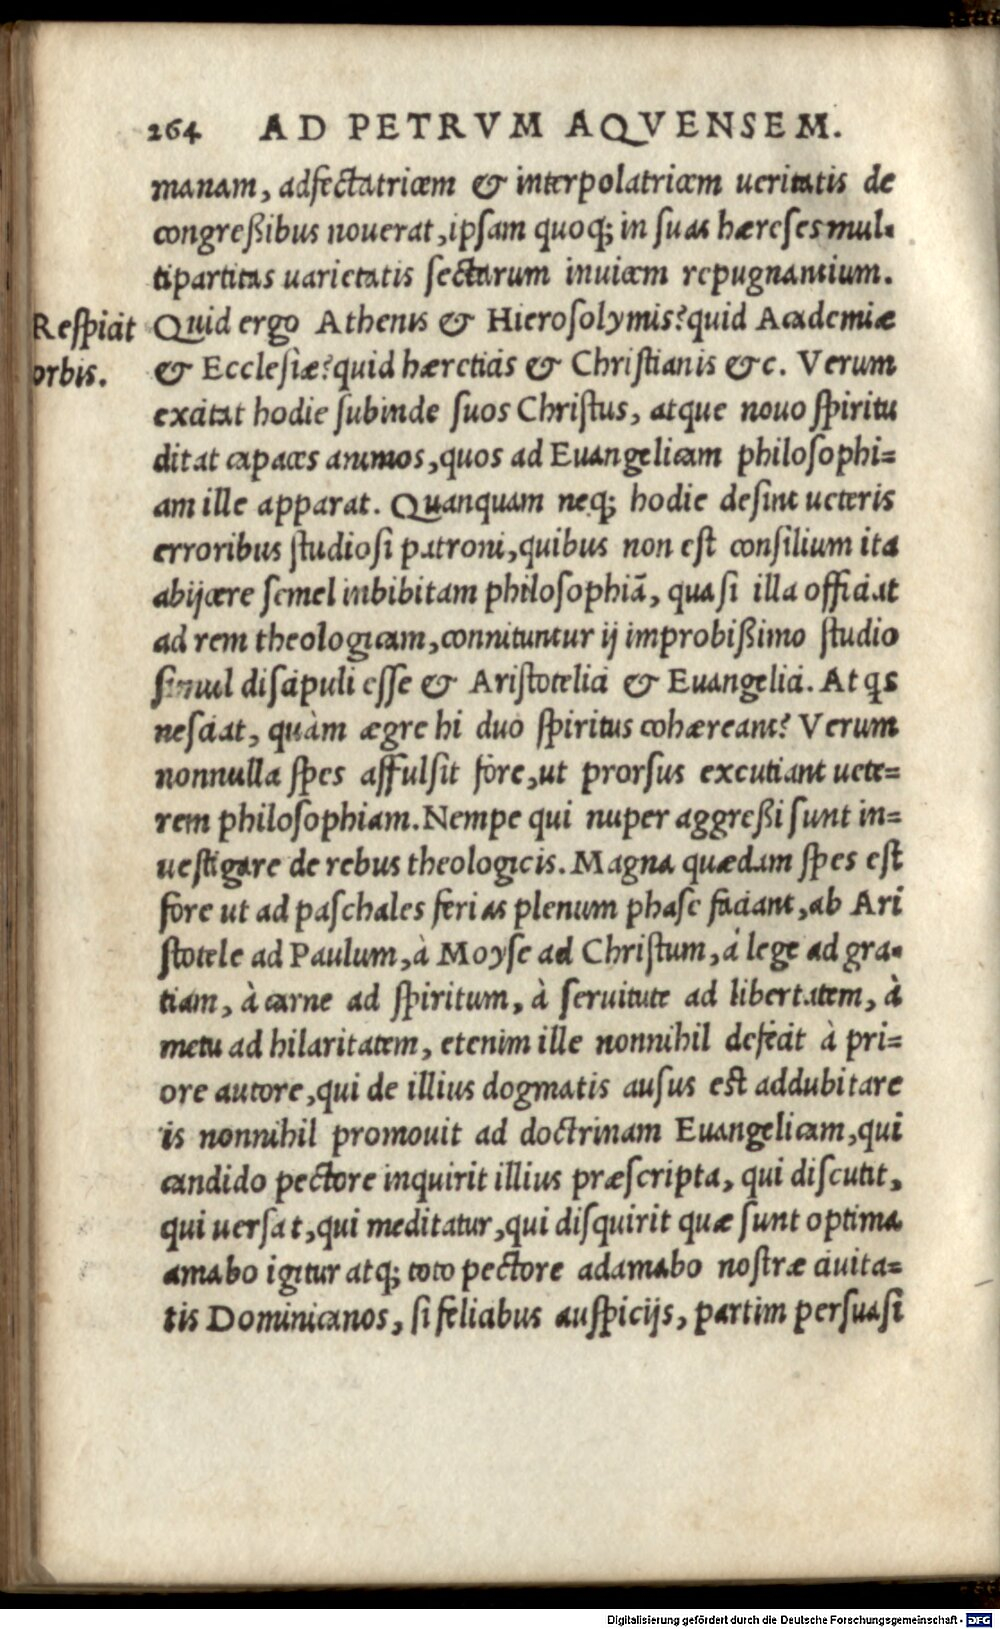 264 AD PETRVM AQVENSEM.
manam, adfectatricem & interpolatricem ueritatis de
congreßibus nouerat, ipsam quoq; in suas hæreses mul-
tipartitas uarietatis sectarum inuicem repugnantium.
Respicit
orbis.
Quid ergo Athenis & Hierosolymis? quid Academiæ
& Ecclesiæ? quid hæreticis & Christianis &c. Verum
excitat hodie subinde suos Christus, atque nouo spiritu
ditat capaces animos, quos ad Euangelicam philosophi=
am ille apparat. Quanquam neq; hodie desint ueteris
erroribus studiosi patroni, quibus non est consilium ita
abijcere semel inbibitam philosophiã, quasi illa officiat
ad rem theologicam, connituntur ij improbißimo studio
simul discipuli esse & Aristotelici & Euangelici. At qs
nesciat, quàm ægre hi duo spiritus cohæreant? Verum
nonnulla spes affulsit fore, ut prorsus excutiant uete=
rem philosophiam. Nempe qui nuper aggreßi sunt in=
uestigare de rebus theologicis. Magna quædam spes est
fore ut ad paschales ferias plenum phase faciant, ab Ari
stotele ad Paulum, à Moyse ad Christum, á lege ad gra-
tiam, à carne ad spiritum, à seruitute ad libertatem, à
metu ad hilaritatem, etenim ille nonnihil defecit à pri=
ore autore, qui de illius dogmatis ausus est addubitare
is nonnihil promouit ad doctrinam Euangelicam, qui
candido pectore inquirit illius præscripta, qui discutit,
qui uersat, qui meditatur, qui disquirit quæ sunt optima
amabo igitur atq; toto pectore adamabo nostræ ciuita=
tis Dominicanos, si felicibus auspicijs, partim persuasi
Digitalisierung gefördert durch die Deutsche Forschungsgemeinschaft - DFG